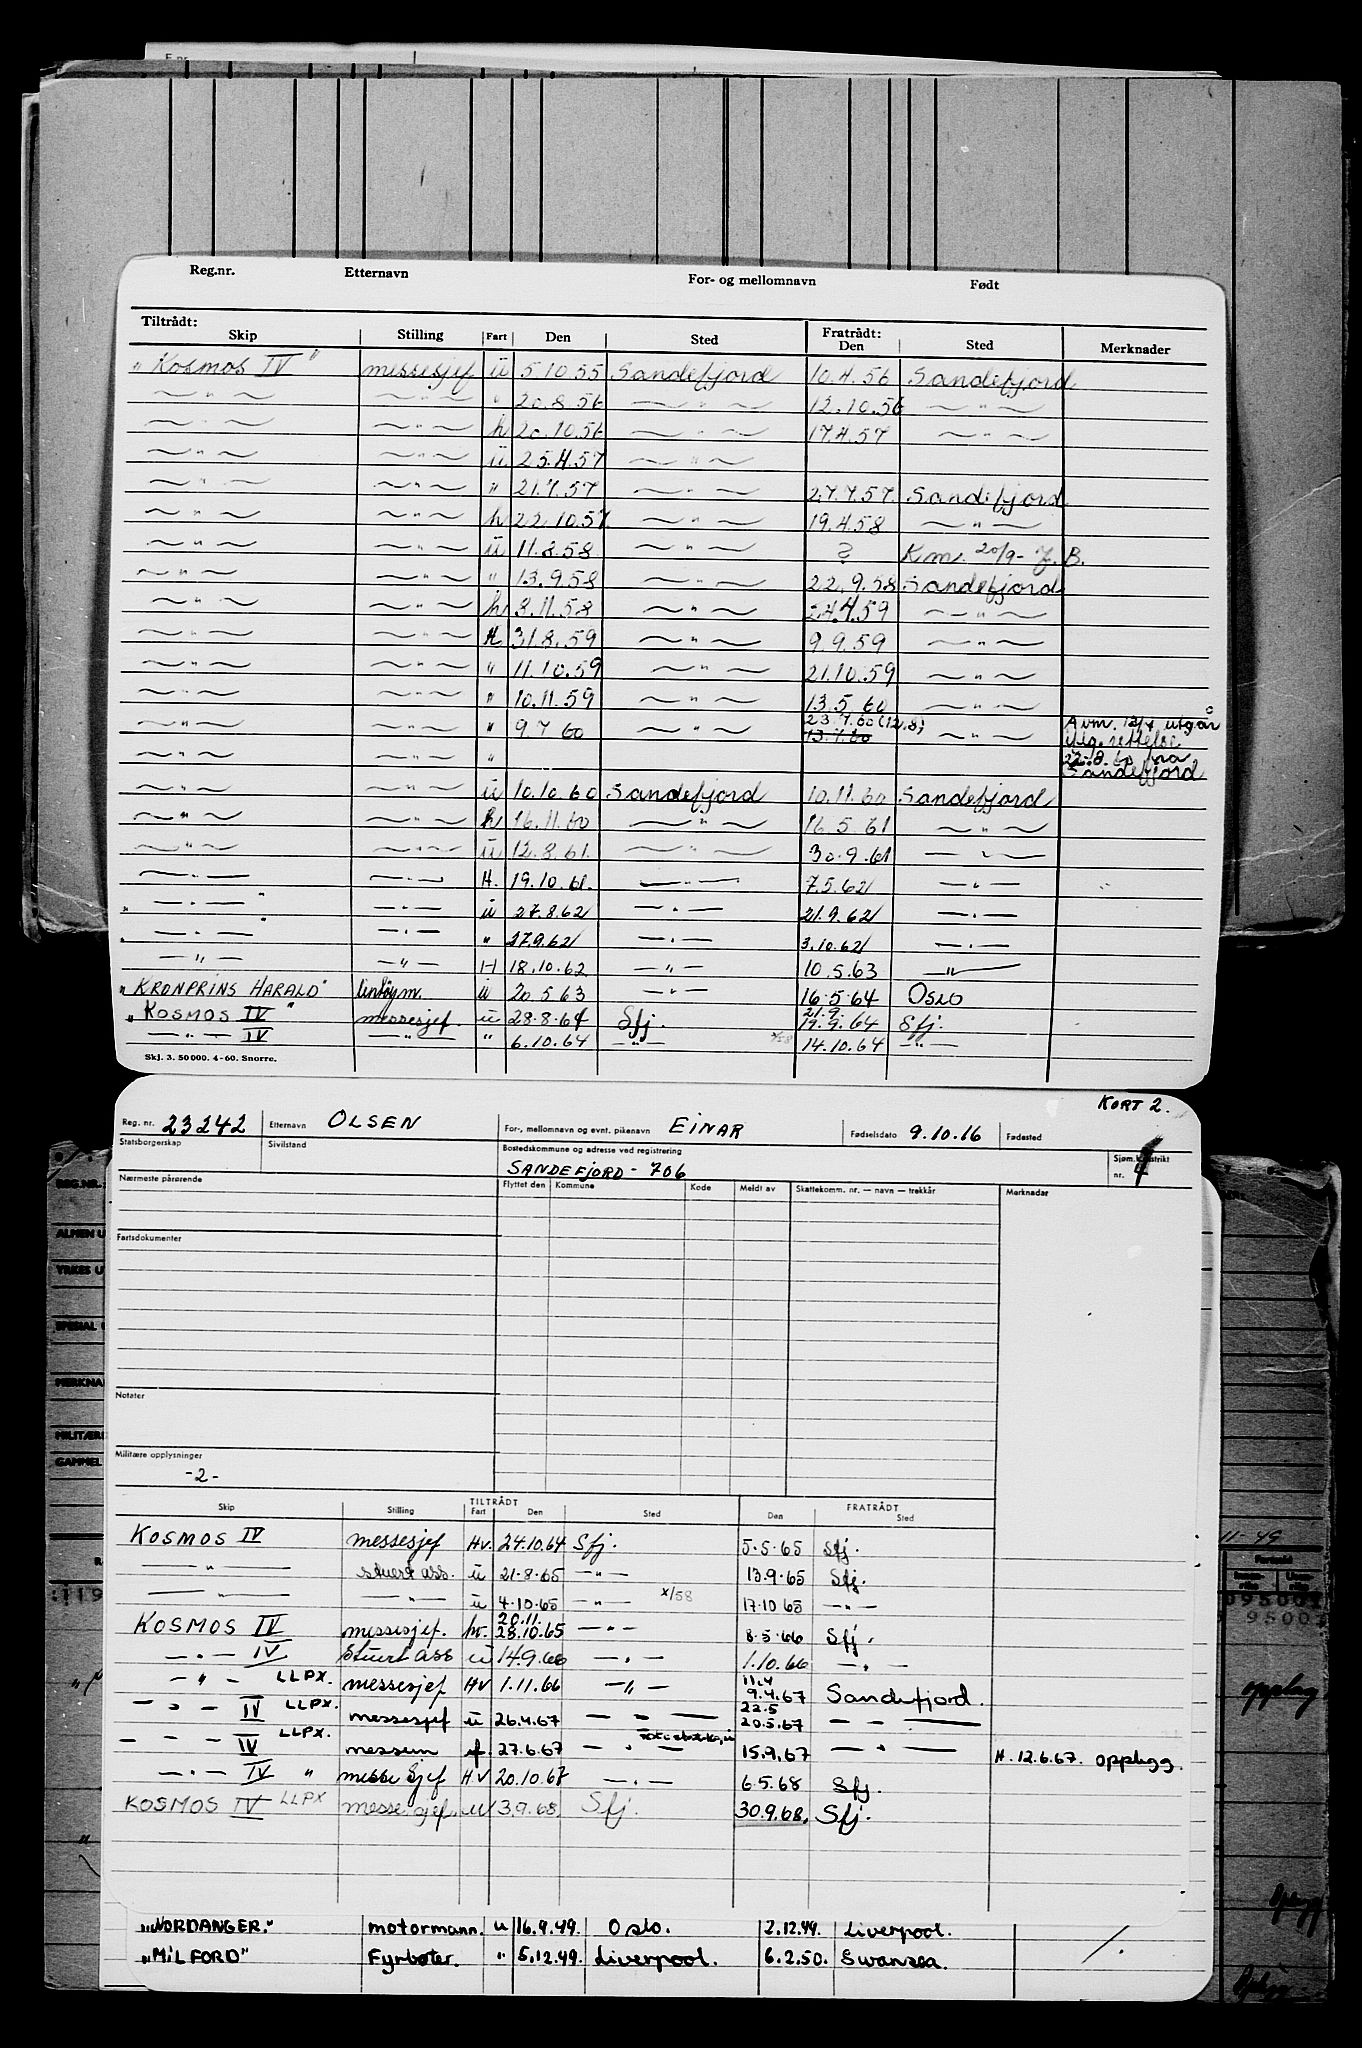 Reg.nr. Etternavn For- og mellomnavn Født
Tiltrådt: Fratrådt:
Skip Stilling Fart Den Sted Den Sted Merknader
"Kosmos IV" messesjef u 5.10.55 Sandefjord 10.4.56 Sandefjord
—"— —"— " 20.8.56 —"— 12.10.56 —"—
—"— —"— h 20.10.56 —"— 17.4.57 —"—
—"— —"— u 25.4.57 —"—
—"— —"— " 21.7.57 —"— 27.7.57. Sandefjord
—"— —"— h 22.10.57 —"— 19.4.58 —"—
—"— —"— u 11.8.58 ? K.m. 20/9- J.B.
—"— —"— " 13.9.58 —"— 22.9.58 Sandefjord
—"— —"— h 8.11.58 —"— 24.4.59 —"—
—"— —"— H. 31.8.59 —"— 9.9.59 —"—
—"— —"— " 11.10.59 —"— 21.10.59 —"—
—"— —"— " 10.11.59 —"— 13.5.60 —"—
—"— —"— " 9.7.60 —"— 23.7.60 (12.8) —"— Avm. 12/7 utgår
13.7.60 rettelse
—"— —"— " 22.8.60 fra
Sandefjord
—"— —"— u 10.10.60 Sandefjord 10.11.60 Sandefjord
—"— —"— h 16.11.60 —"— 16.5.61 —"—
—"— —"— u 12.8.61. —"— 30.9.61 —"—
—"— —"— H. 19.10.61. —"— 7.5.62 —"—
"—"—" —"— u 27.8.62 —"— 21.9.62 —"—
"—"—" —"— " 27.9.62 —"— 3.10.62 —"—
—"— —"— H 18.10.62 —"— 10.5.63 —"—
"KRONPRINS HARALD" u 20.5.63 —"— 16.5.64 Oslo
21.9.
"KOSMOS IV" messesjef. u 28.8.64 Sfj. 19.9.64 Sfj.
—"— IV —"— " 6.10.64 —"— x/58 14.10.64 —"—
Skj. 3. 50 000. 4-60. Snorre.
KORT 2.
Reg. nr. 23242 Etternavn OLSEN For-, mellomnavn og evnt. pikenavn EINAR Fødselsdato 9.10.16 Fødested
Statsborgerskap Sivilstand Bostedskommune og adresse ved registrering SANDEFJORD - 706 Sjøm.k.distrikt nr. 4
Nærmeste pårørende Flyttet den Kommune Kode Meldt av Skattekomm. nr. — navn — trekkår Merknader
Fartsdokumenter
Notater
Militære opplysninger
-2-
TILTRÅDT FRATRÅDT
Skip Stilling Fart Den Sted Den Sted
KOSMOS IV messesjef Hv. 24.10.64 Sfj. 5.5.65 Sfj.
—"— stuert ass. u 21.8.65 —"— 13.9.65 Sfj.
—"— —"— u 4.10.65 —"— x/58 17.10.65 —"—
20.11.
KOSMOS IV messesjef. hv. 28.10.65 —"— 8.5.66 Sfj.
—"— IV Stuert ass u 14.9.66 —"— 1.10.66 —"—
11.4
—"— LLPX. messesjef Hv 1.11.66 —"— 9.4.67 Sandefjord.
22.5
—"— IV LLPX. messesjef u 26.4.67 —"— 20.5.67 —"—
—"— IV LLPX. 27.6.67 —"— 15.9.67 —"— H. 12.6.67. opplegg.
—"— IV " messe Sjef HV 20.10.67 —"— 6.5.68 Sfj.
KOSMOS IV LLPX messe sjef. u 3.9.68 Sfj. 30.9.68. Sfj.
"NORDANGER." motormann. u 16.9.49. Oslo. 2.12.49. Liverpool.
"MILFORD" Fyrbøter. " 5.12.49. Liverpool. 6.2.50. Swansea.
REG.NR.
ALMEN U
YRKES U
SPESIAL
MERKNA
MILITÆR
GAMMEL
11-49
opplegg